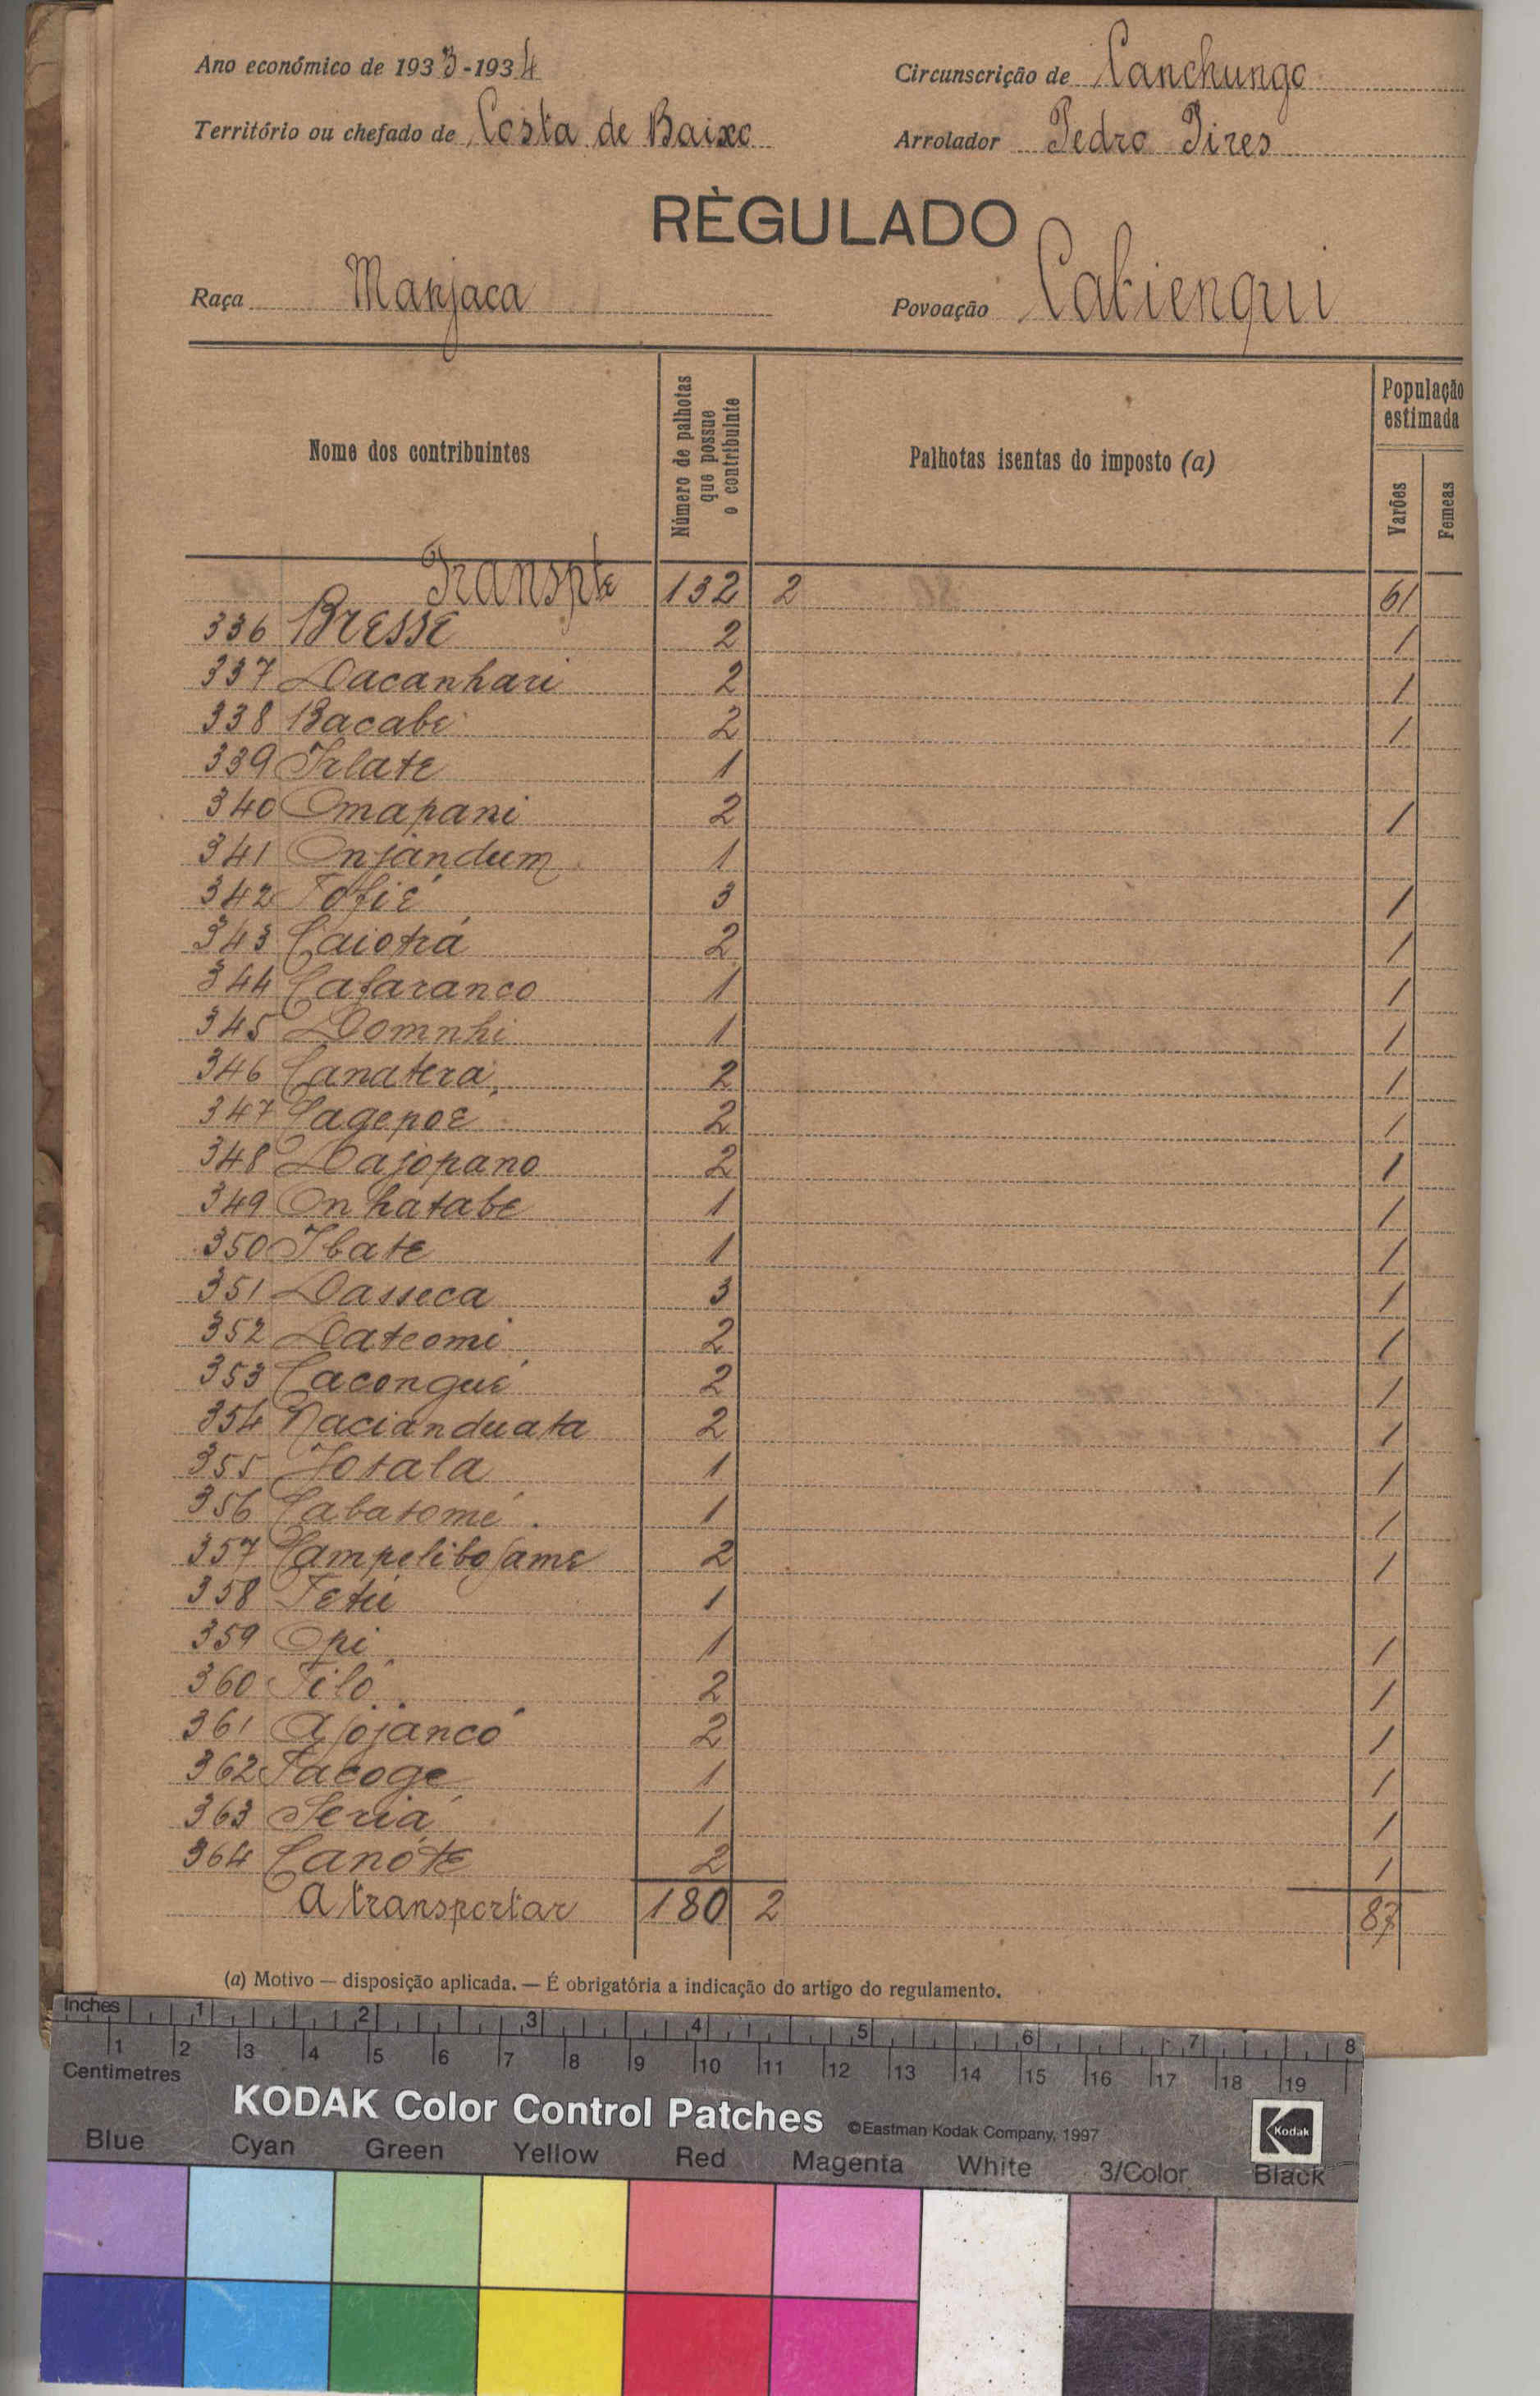 Ano económico de 1933-1934
Circunscrição de Canchungo
Território ou chefado de Costa de Baixo
Arrolador Pedro Pires
RÈGULADO
Raça Manjaca
Povoação Cabienqui
Nome dos contribuintes
Número de palhotas que possue o contribuinte
Palhotas isentas do imposto (a)
População estimada
Varões
Femeas
Transpte 132 2 61
336 Bresse 2 1
337 Dacanhari 2 1
338 Bacabe 2 1
339 Irlate 1
340 Omapani 2 1
341 Onjandum 1
342 Tofié 3 1
343 Caiotrá 2 1
344 Cafaranco 1 1
345 Domnhi 1 1
346 Canatera 2 1
347 Cagepoe 2 1
348 Dajopano 2 1
349 Onhatabe 1 1
350 Ibate 1 1
351 Dasseca 3 1
352 Dateomi 2 1
353 Cacongué 2 1
354 Nacianduata 2 1
355 Jotala 1 1
356 Cabatomé 1 1
357 Campelibofame 2 1
358 Tetú 1
359 Opi 1 1
360 Filó 2 1
361 Ajojancó 2 1
362 Facoge 1 1
363 Seriá 1 1
364 Canóte 2 1
A transportar 180 2 87
(a) Motivo — disposição aplicada. — É obrigatória a indicação do artigo do regulamento.
Inches 1 2 3 4 5 6 7 8
1 2 3 4 5 6 7 8 9 10 11 12 13 14 15 16 17 18 19
Centimetres
KODAK Color Control Patches ©Eastman Kodak Company, 1997 Kodak
Blue Cyan Green Yellow Red Magenta White 3/Color Black